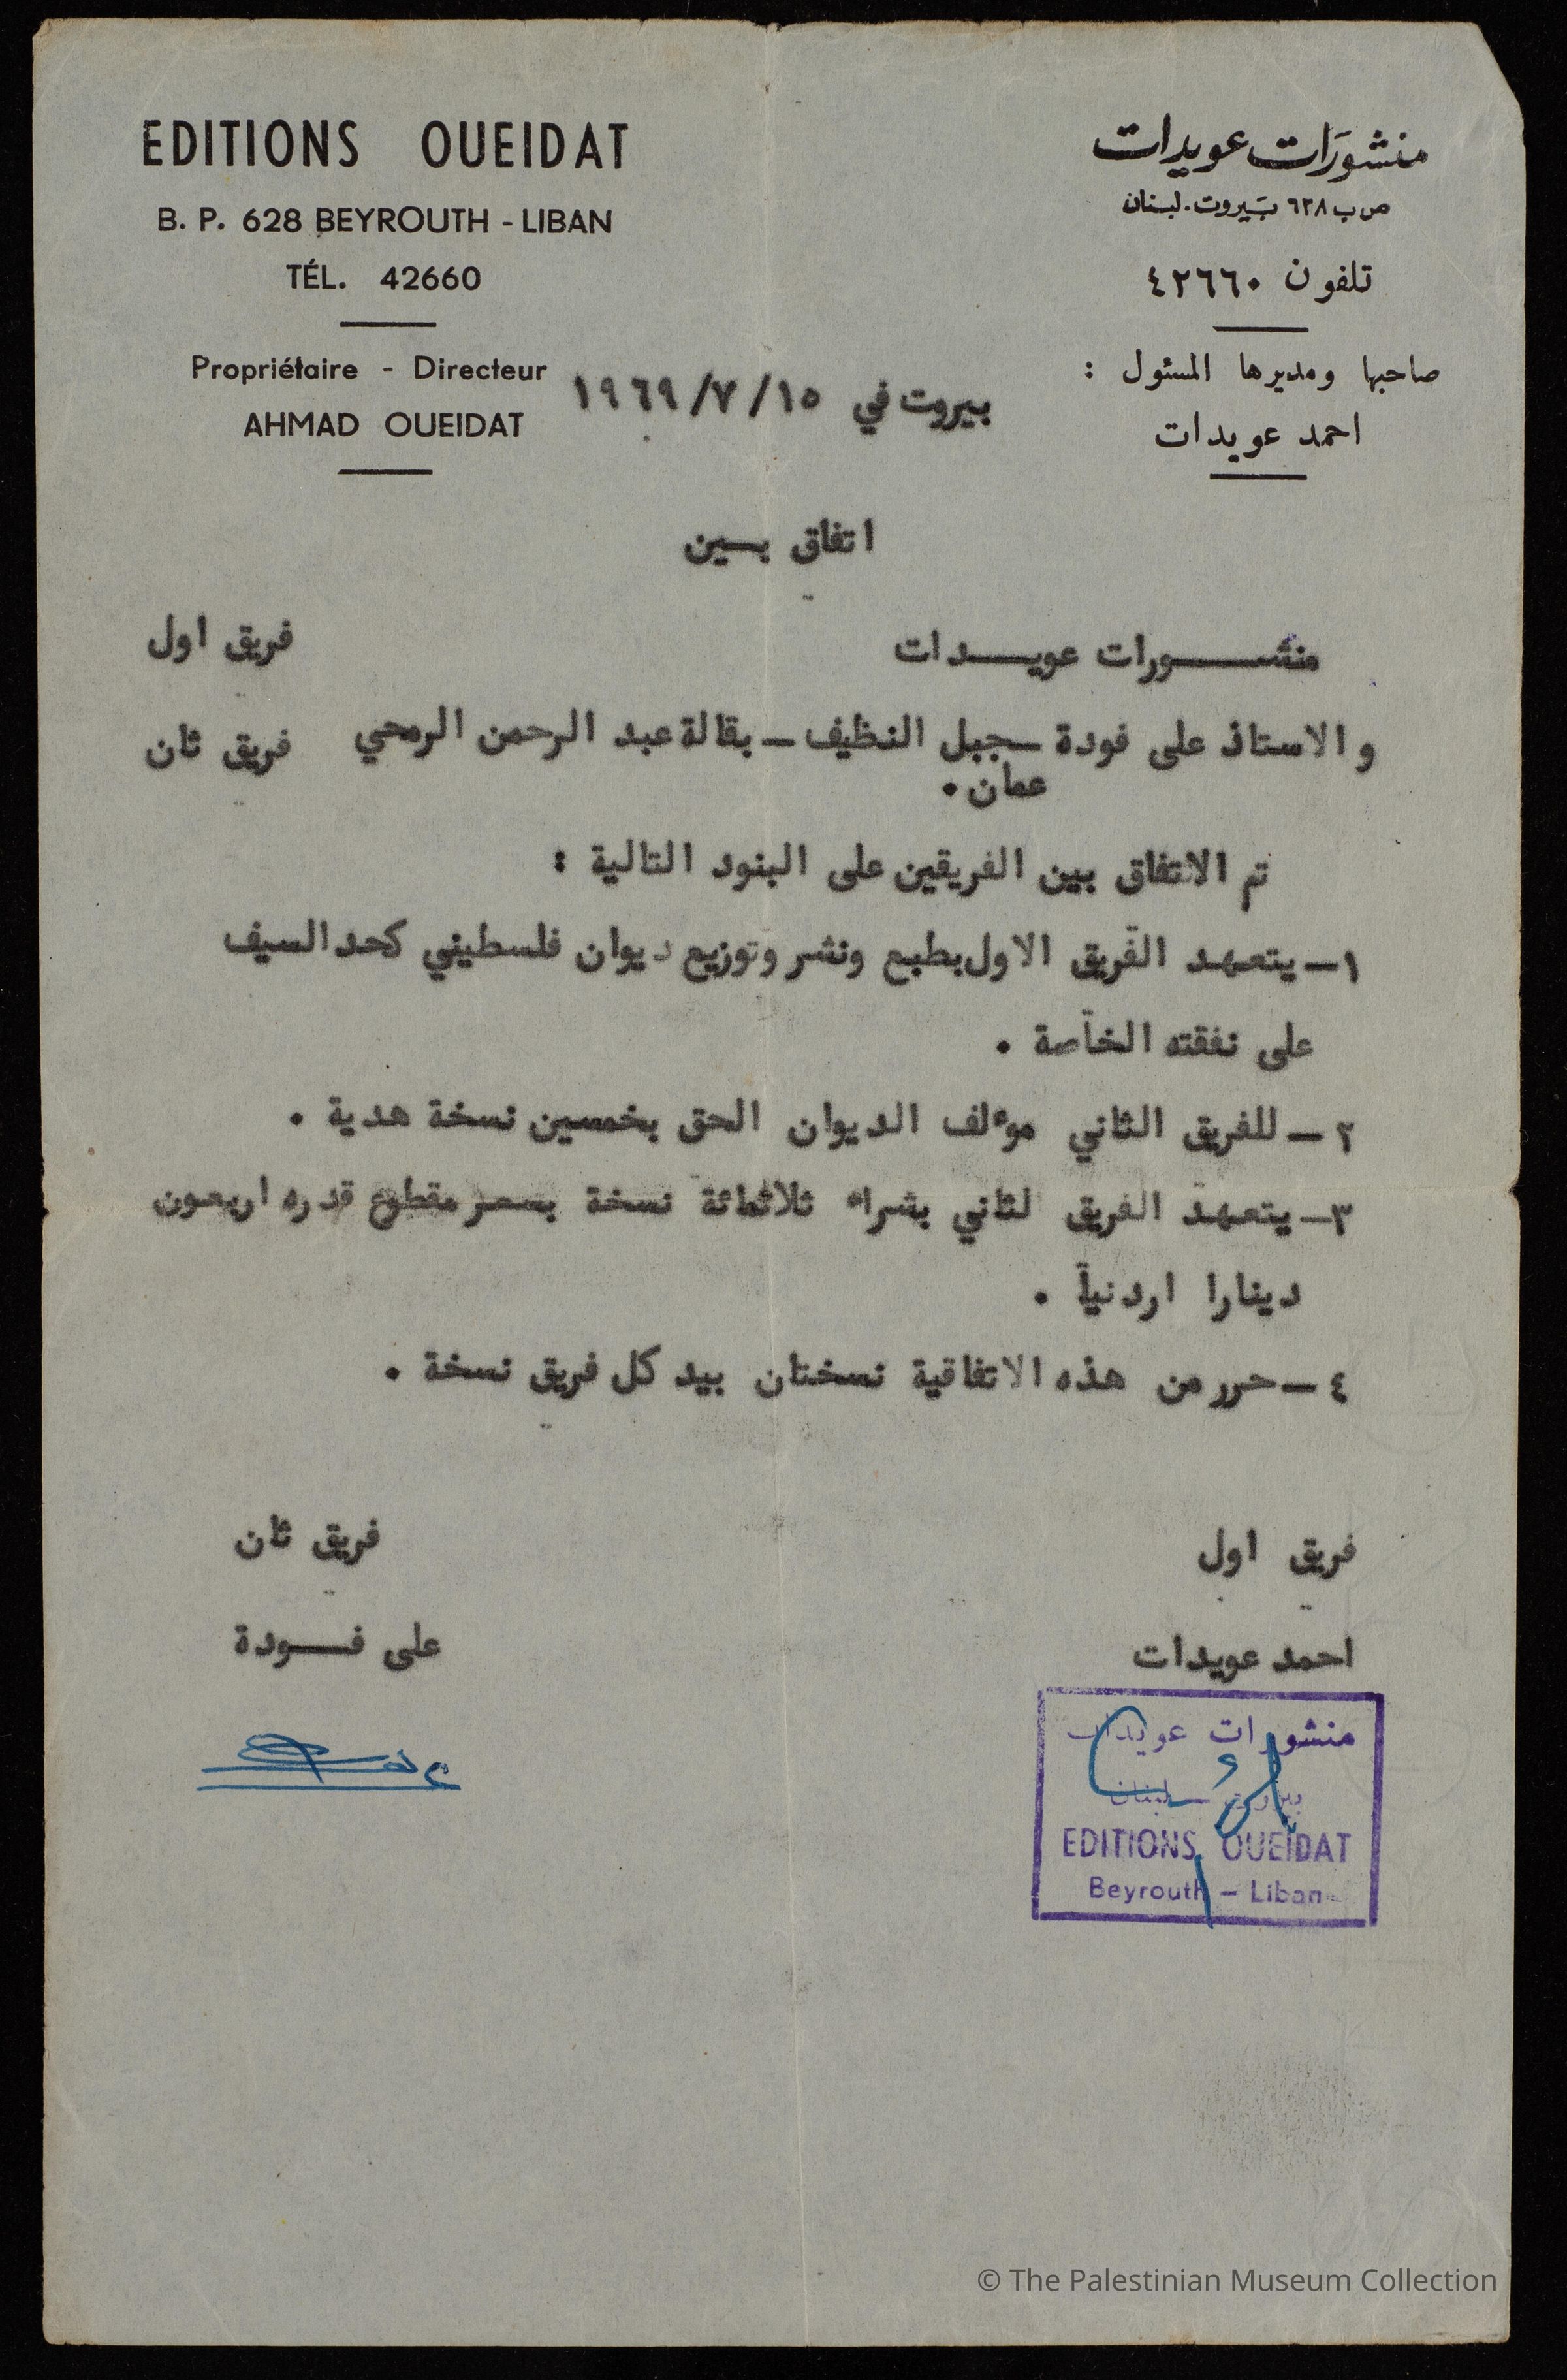 EDITIONS OUEIDAT
B. P. 628 BEYROUTH - LIBAN
TÉL. 42660
Propriétaire - Directeur
AHMAD OUEIDAT
منشورات عويدات
ص ب ٦٢٨ بيروت. لبنان
تلفون ٤٢٦٦٠
صاحبها ومديرها المسئول :
احمد عويدات
بيروت في ١٩٦٩/٧/١٥
اتفاق بــين
منشــــورات عويــــدات فريق اول
والاستاذ على فودة ـ جبل النظيف ـ بقالة عبد الرحمن الرمحي فريق ثان
عمان .
تم الاتفاق بين الفريقين على البنود التالية :
١ـ يتعهد الفريق الاول بطبع ونشر وتوزيع ديوان فلسطيني كحد السيف
على نفقته الخاصة .
٢ ـ للفريق الثاني موءلف الديوان الحق بخمسين نسخة هدية .
٣ـ يتعهد الفريق لثاني بشراء ثلاثمائة نسخة بسعر مقطوع قدره اربعون
دينارا اردنيا .
٤ ـ حرر من هذه الاتفاقية نسختان بيد كل فريق نسخة .
فريق اول فريق ثان
احمد عويدات على فـــودة
منشورات عويدات
بيروت ـ لبنان
EDITIONS OUEIDAT
Beyrouth - Liban
© The Palestinian Museum Collection